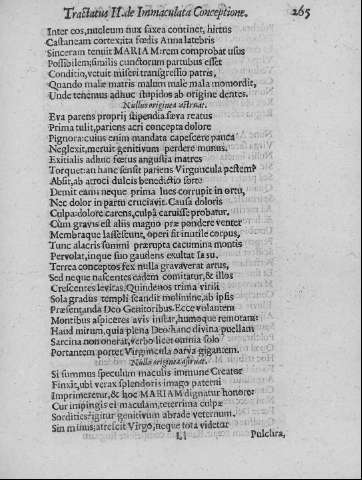 Tractatus II. de Immaculata Conceptione. 265
Inter eos, nucleum nux saxea continet, hirtus
Castaneam cortex ita fœdis Anna latebris
Sinceram tenuit MARIAM: rem comprobat usus
Possibilem; similis cunctorum partubus esset
Conditio, vetuit miseri transgressio patris,
Quando malæ matris malum male mala momordit,
Unde tenemus adhuc stupidos ab origine dentes.
Nullus origine a astruat.
Eva parens proprij stipendia sæva reatus
Prima tulit, pariens acri concepta dolore
Pignora: cuius enim mandata capescere pauca
Neglexit, meruit genitivum perdere munus.
Exitialis adhuc fœtus angustia matres
Torquet: an hanc sensit pariens Virguncula pestem?
Absit, ab atroci dulcis benedictio sorte
Demit eam: neque prima lues corrupit in ortu,
Nec dolor in partu cruciavit. Causa doloris
Culpa: dolore carens, culpâ caruisse probatur.
Cùm gravis est aliis magno præ pondere venter
Membraque lassescunt, operi sit inutile corpus,
Tunc alacris summi prærupta cacumina montis
Pervolat, inque suo gaudens exultat
Terrea conceptos fex nulla gravaverat artus,
Sed neque nascentes eadem comitatur, & illos
Crescentes levitas. Quindenos trima virili
Sola gradus templi scandit molimine, ab ipsis
Præsentanda Deo Genitoribus. Ecce volantem
Montibus aspiceres avis instar, humoque remotam:
Haud mirum, quia plena Deo: hanc divina puellam
Sarcina non onerat, verbo licet omnia solo
Portantem portet Virguncula parva gigantem.
Nulla origine a astruat.
Si summus speculum maculis immune Creator
Finxit, ubi veras splendoris imago paterni
Imprimeretur, & hoc MARIAM dignatur honore:
Cur impingis ei maculam, teterrima culpæ
Sordities? igitur genitivum abrade veternum.
Sin minus; atrescit Virgo, neque tota videtur
Ll Pulchra,